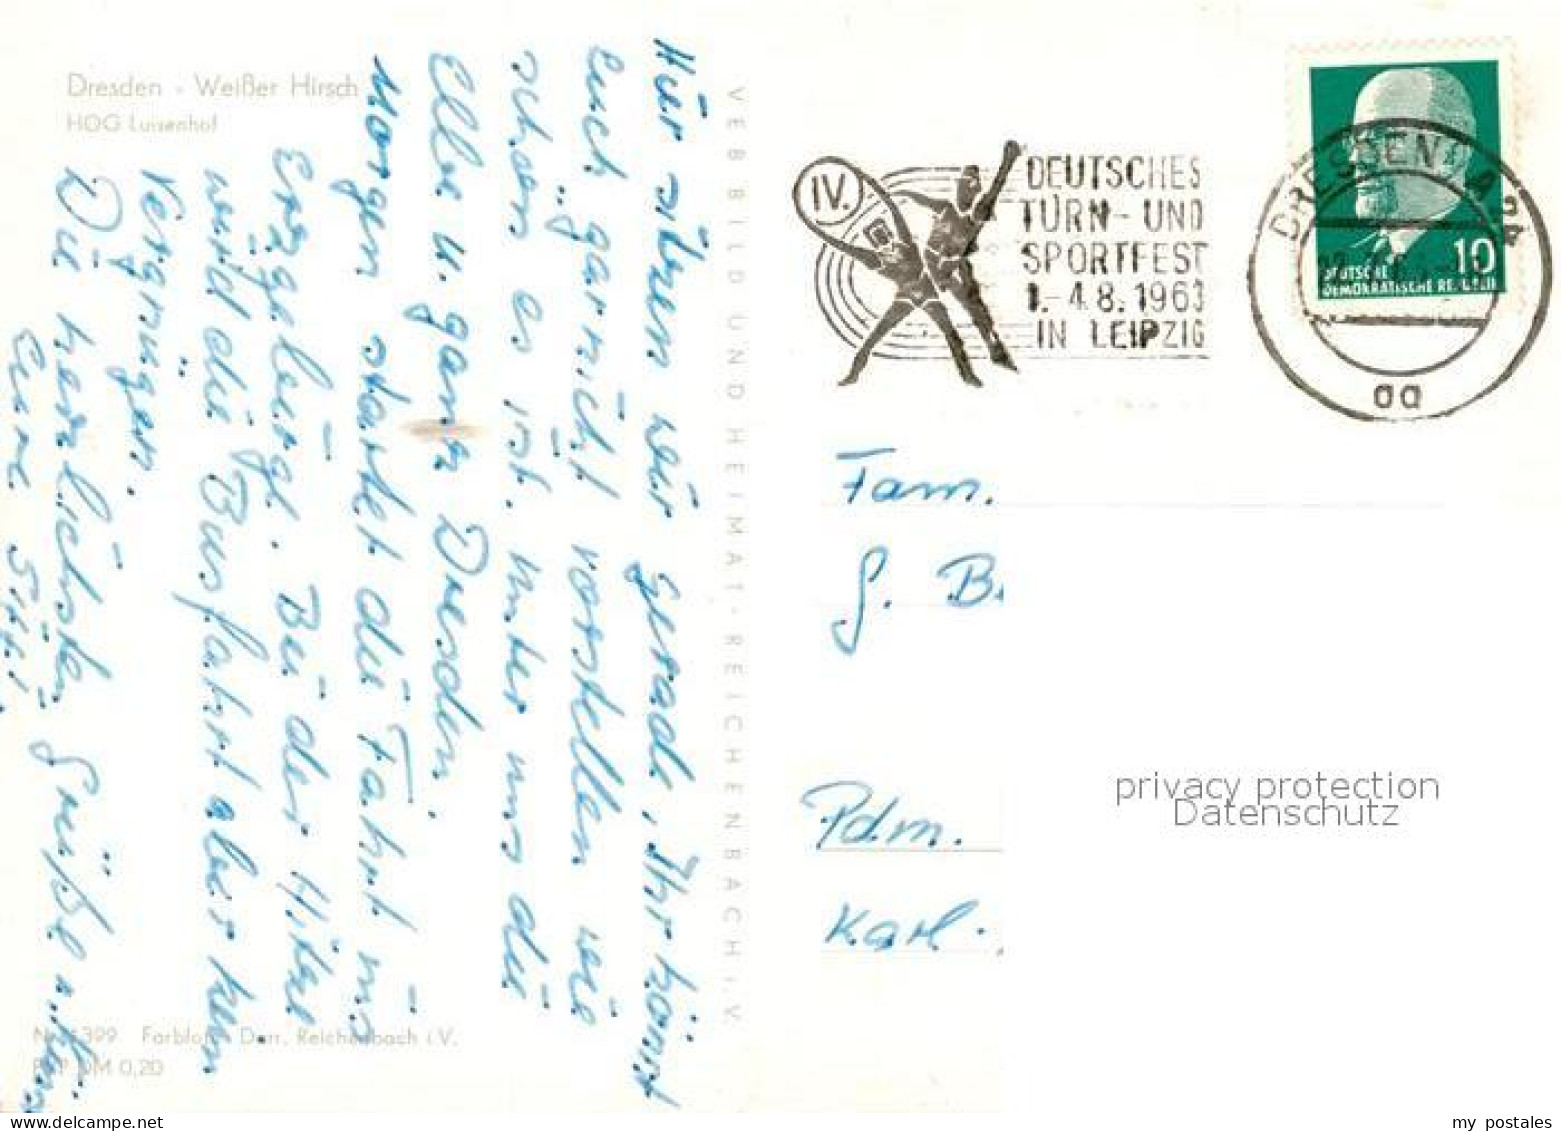 Dresden - Weißer Hirsch
HOG Luisenhof
Hier sitzen wir gerade, Ihr könnt
euch garnicht vorstellen wie
schön es ist. Unter uns die
Elbe u. ganz Dresden.
Morgen startet die Fahrt ins
Erzgebirge. Bei der Hitze
wird die Busfahrt aber kein
Vergnügen.
Die herzlichsten Grüße
Eure Sitti
VEB BILD UND HEIMAT · REICHENBACH i.V.
Farbfoto: Darr, Reichenbach i.V.
DM 0,20
IV.
DEUTSCHES
TURN- UND
SPORTFEST
1.-4.8.1963
IN LEIPZIG
DRESDEN A
aa
10
DEUTSCHE
DEMOKRATISCHE REPUBLIK
Fam.
G. B
Pdm.
Karl
privacy protection
Datenschutz
my postales